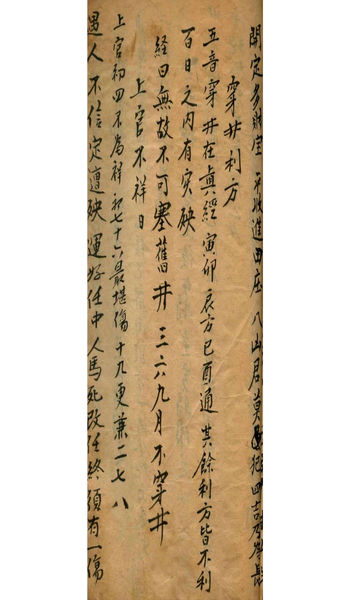 開定多財宝 平收進田庄 八山君莫犯四吉
穿井利方
五音穿井在真經 寅卯辰方巳酉通 其餘利方皆不利
百日之內有灾殃
經曰無故不可塞舊井 三六九月不穿井
上官不祥日
上官初四不為祥 初七十六最堪傷 十九更兼二七八
愚人不信定遭殃 運好任中人馬死 改任終須有一傷